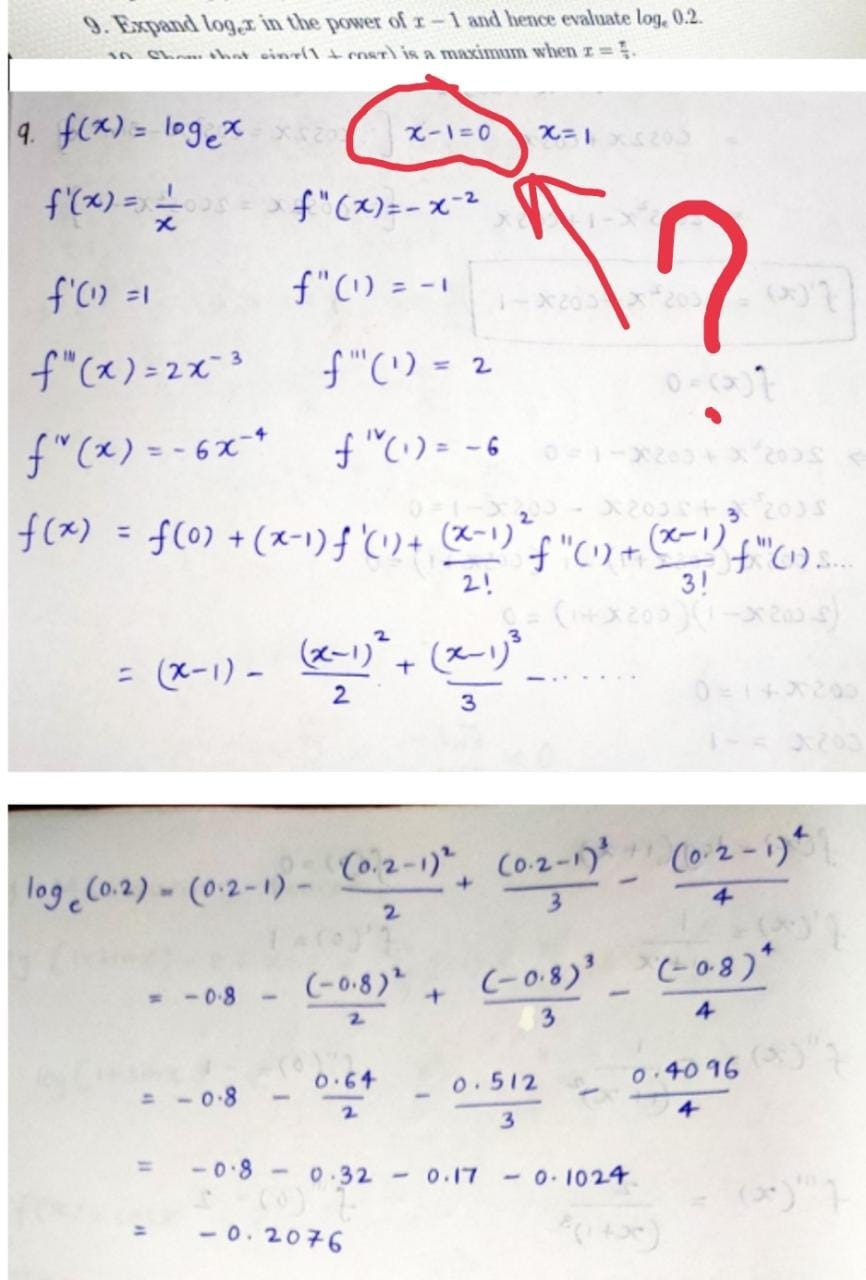 9. Expand logₑx in the power of x − 1 and hence evaluate logₑ 0.2.
10. Show that sinx(1 + cosx) is a maximum when x =
9. f(x) = logₑx x-1=0 x=1
f'(x) = 1/x f''(x) = -x⁻²
f'(1) = 1 f''(1) = -1
?
f'''(x) = 2x⁻³ f'''(1) = 2
fⁱᵛ(x) = -6x⁻⁴ fⁱᵛ(1) = -6
f(x) = f(0) + (x-1)f'(1) + (x-1)²/2! f''(1) + (x-1)³/3! f'''(1)....
= (x-1) - (x-1)²/2 + (x-1)³/3 - ......
logₑ(0.2) = (0.2-1) - (0.2-1)²/2 + (0.2-1)³/3 - (0.2-1)⁴/4
= -0.8 - (-0.8)²/2 + (-0.8)³/3 - (-0.8)⁴/4
= -0.8 - 0.64/2 - 0.512/3 - 0.4096/4
= -0.8 - 0.32 - 0.17 - 0.1024
= -0.2076